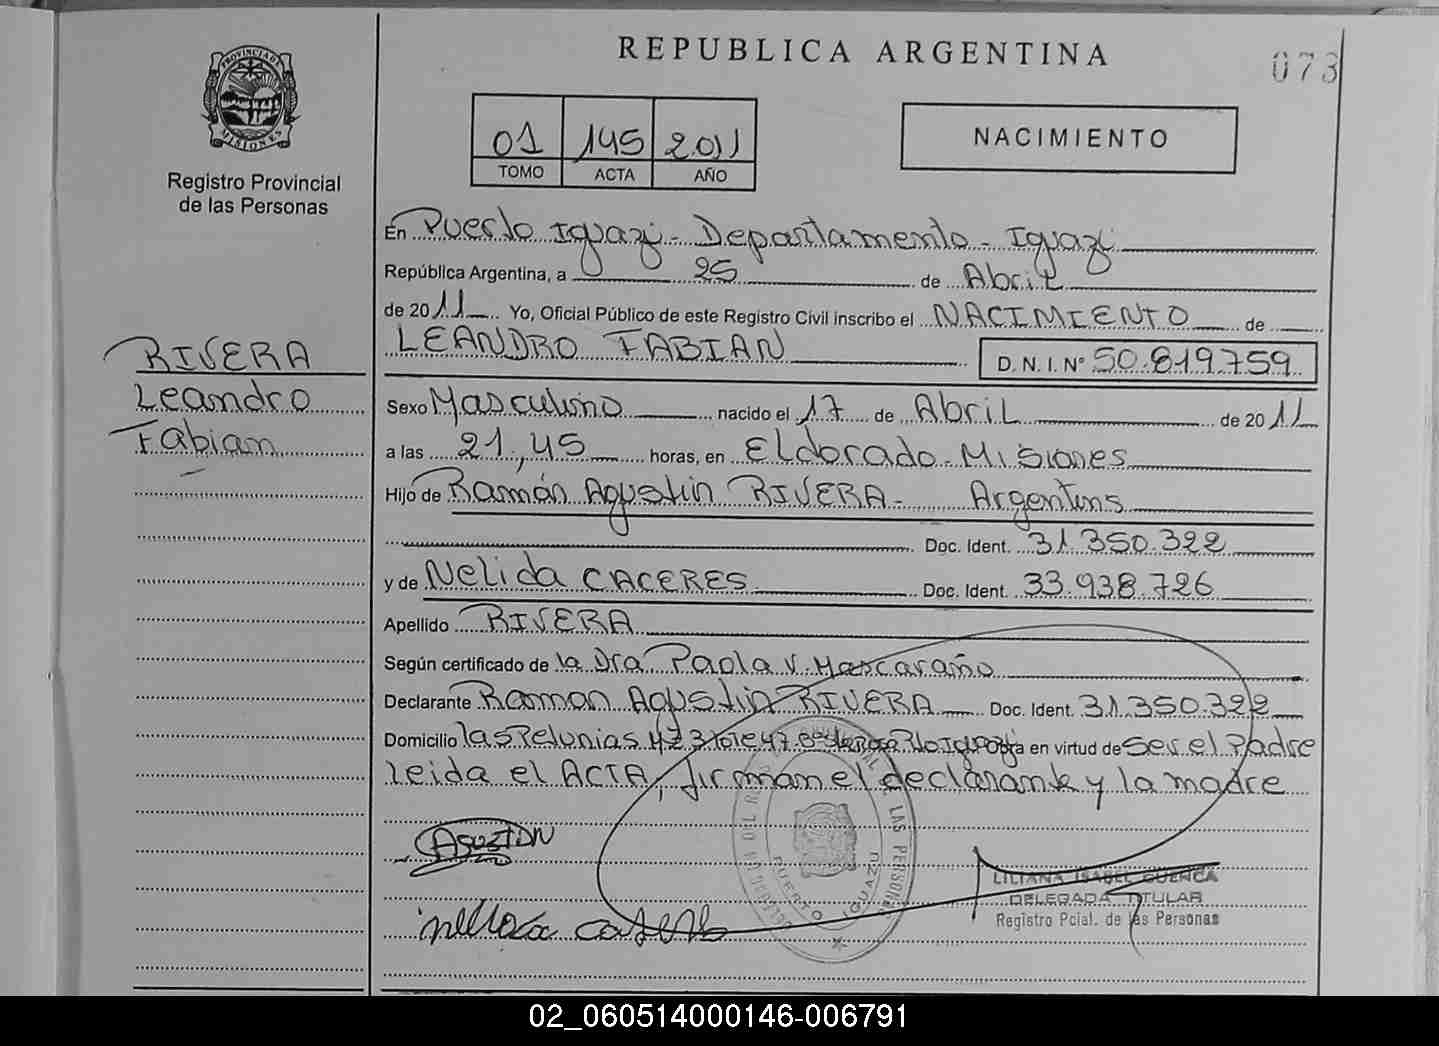 REPUBLICA ARGENTINA
073
PROVINCIA DE MISIONES
Registro Provincial
de las Personas
01 145 2011
TOMO ACTA AÑO
NACIMIENTO
En Puerto Iguazú - Departamento - Iguazú
República Argentina, a 25 de Abril
de 2011 Yo, Oficial Público de este Registro Civil inscribo el NACIMIENTO de
LEANDRO FABIAN D.N.I. Nº 50.819.759
RIVERA
Leandro
Fabian
Sexo Masculino nacido el 17 de Abril de 2011
a las 21,45 horas, en Eldorado - Misiones
Hijo de Ramón Agustin RIVERA - Argentins
Doc. Ident. 31.350.322
y de Nelida CACERES Doc. Ident. 33.938.726
Apellido RIVERA
Según certificado de la Dra Paola V. Mascaraño
Declarante Ramon Agustin RIVERA Doc. Ident. 31.350.322
Domicilio las Petunias 423 lote 47 en virtud de ser el Padre
leida el ACTA, firman el declarante y la madre
AGUSTIN
LILIANA ISABEL CUENCA
DELEGADA TITULAR
Registro Pcial. de las Personas
PUERTO IGUAZU
02_060514000146-006791